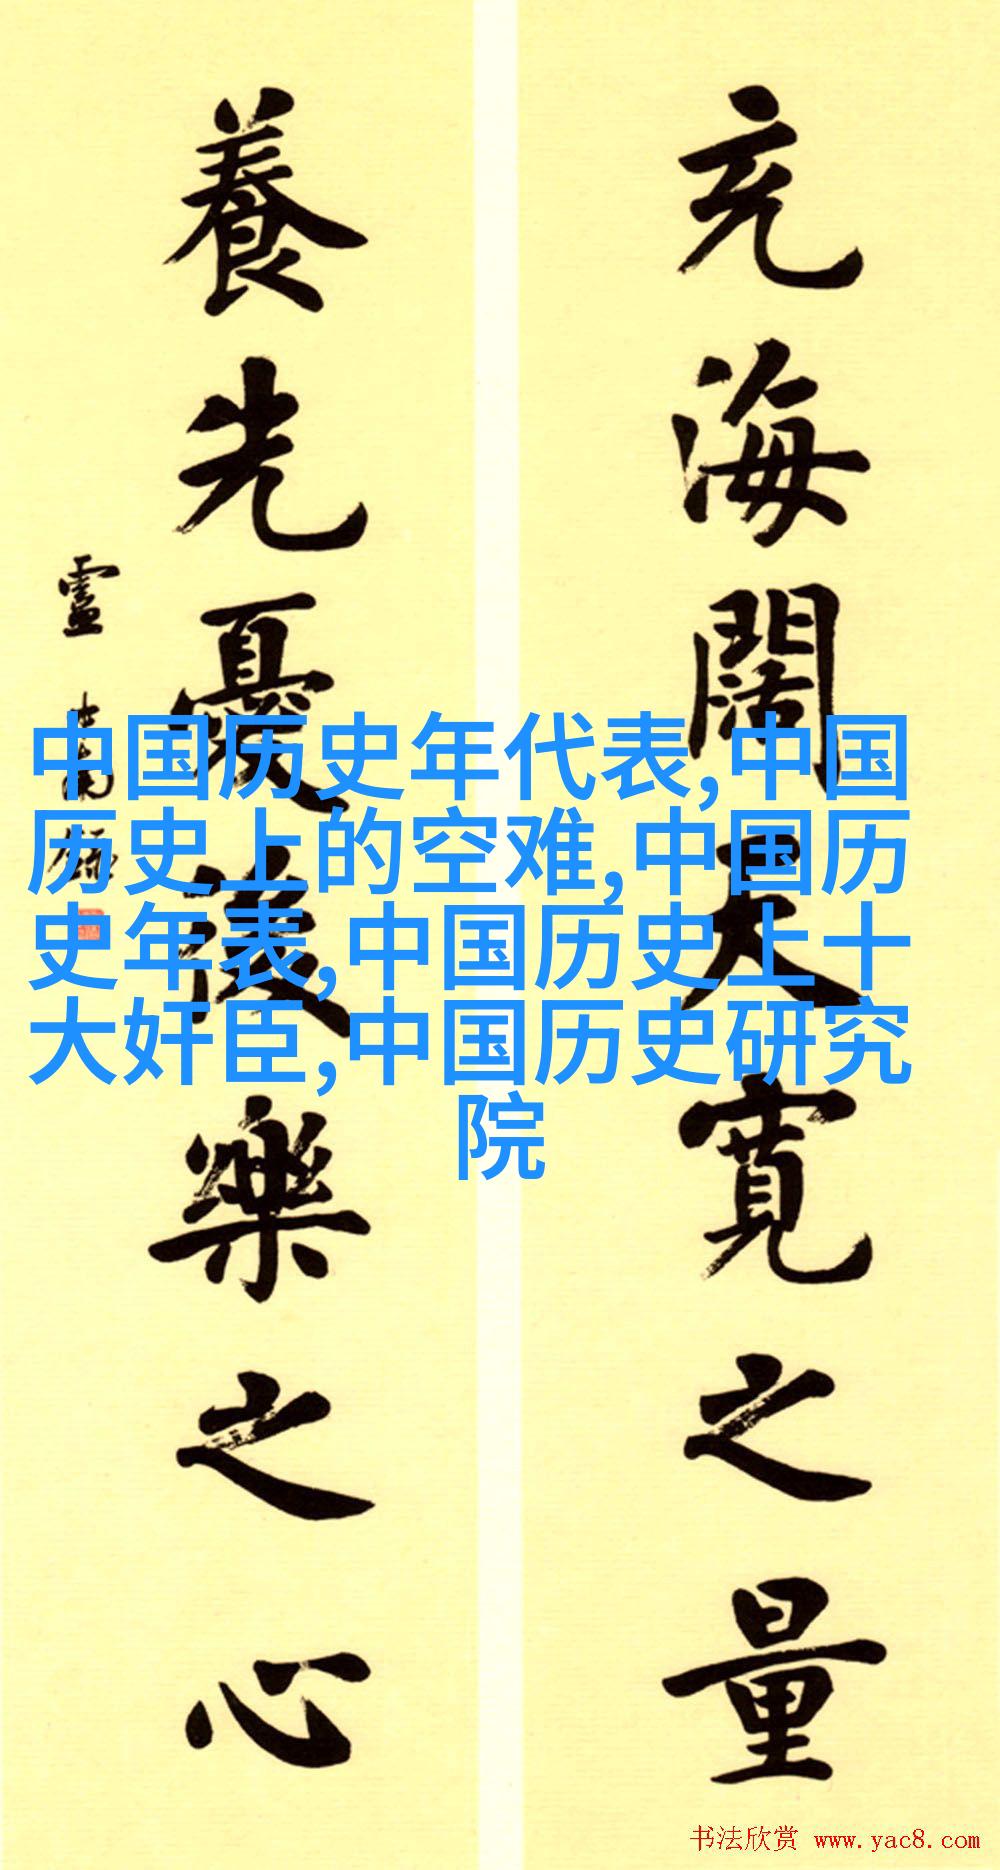 充海闊天寬之量
養先憂後樂之心
中国历史年代表,中国
历史上的空难,中国历
史年表,中国历史上十
大奸臣,中国历史研究
院
书法欣赏 www.yac8.com